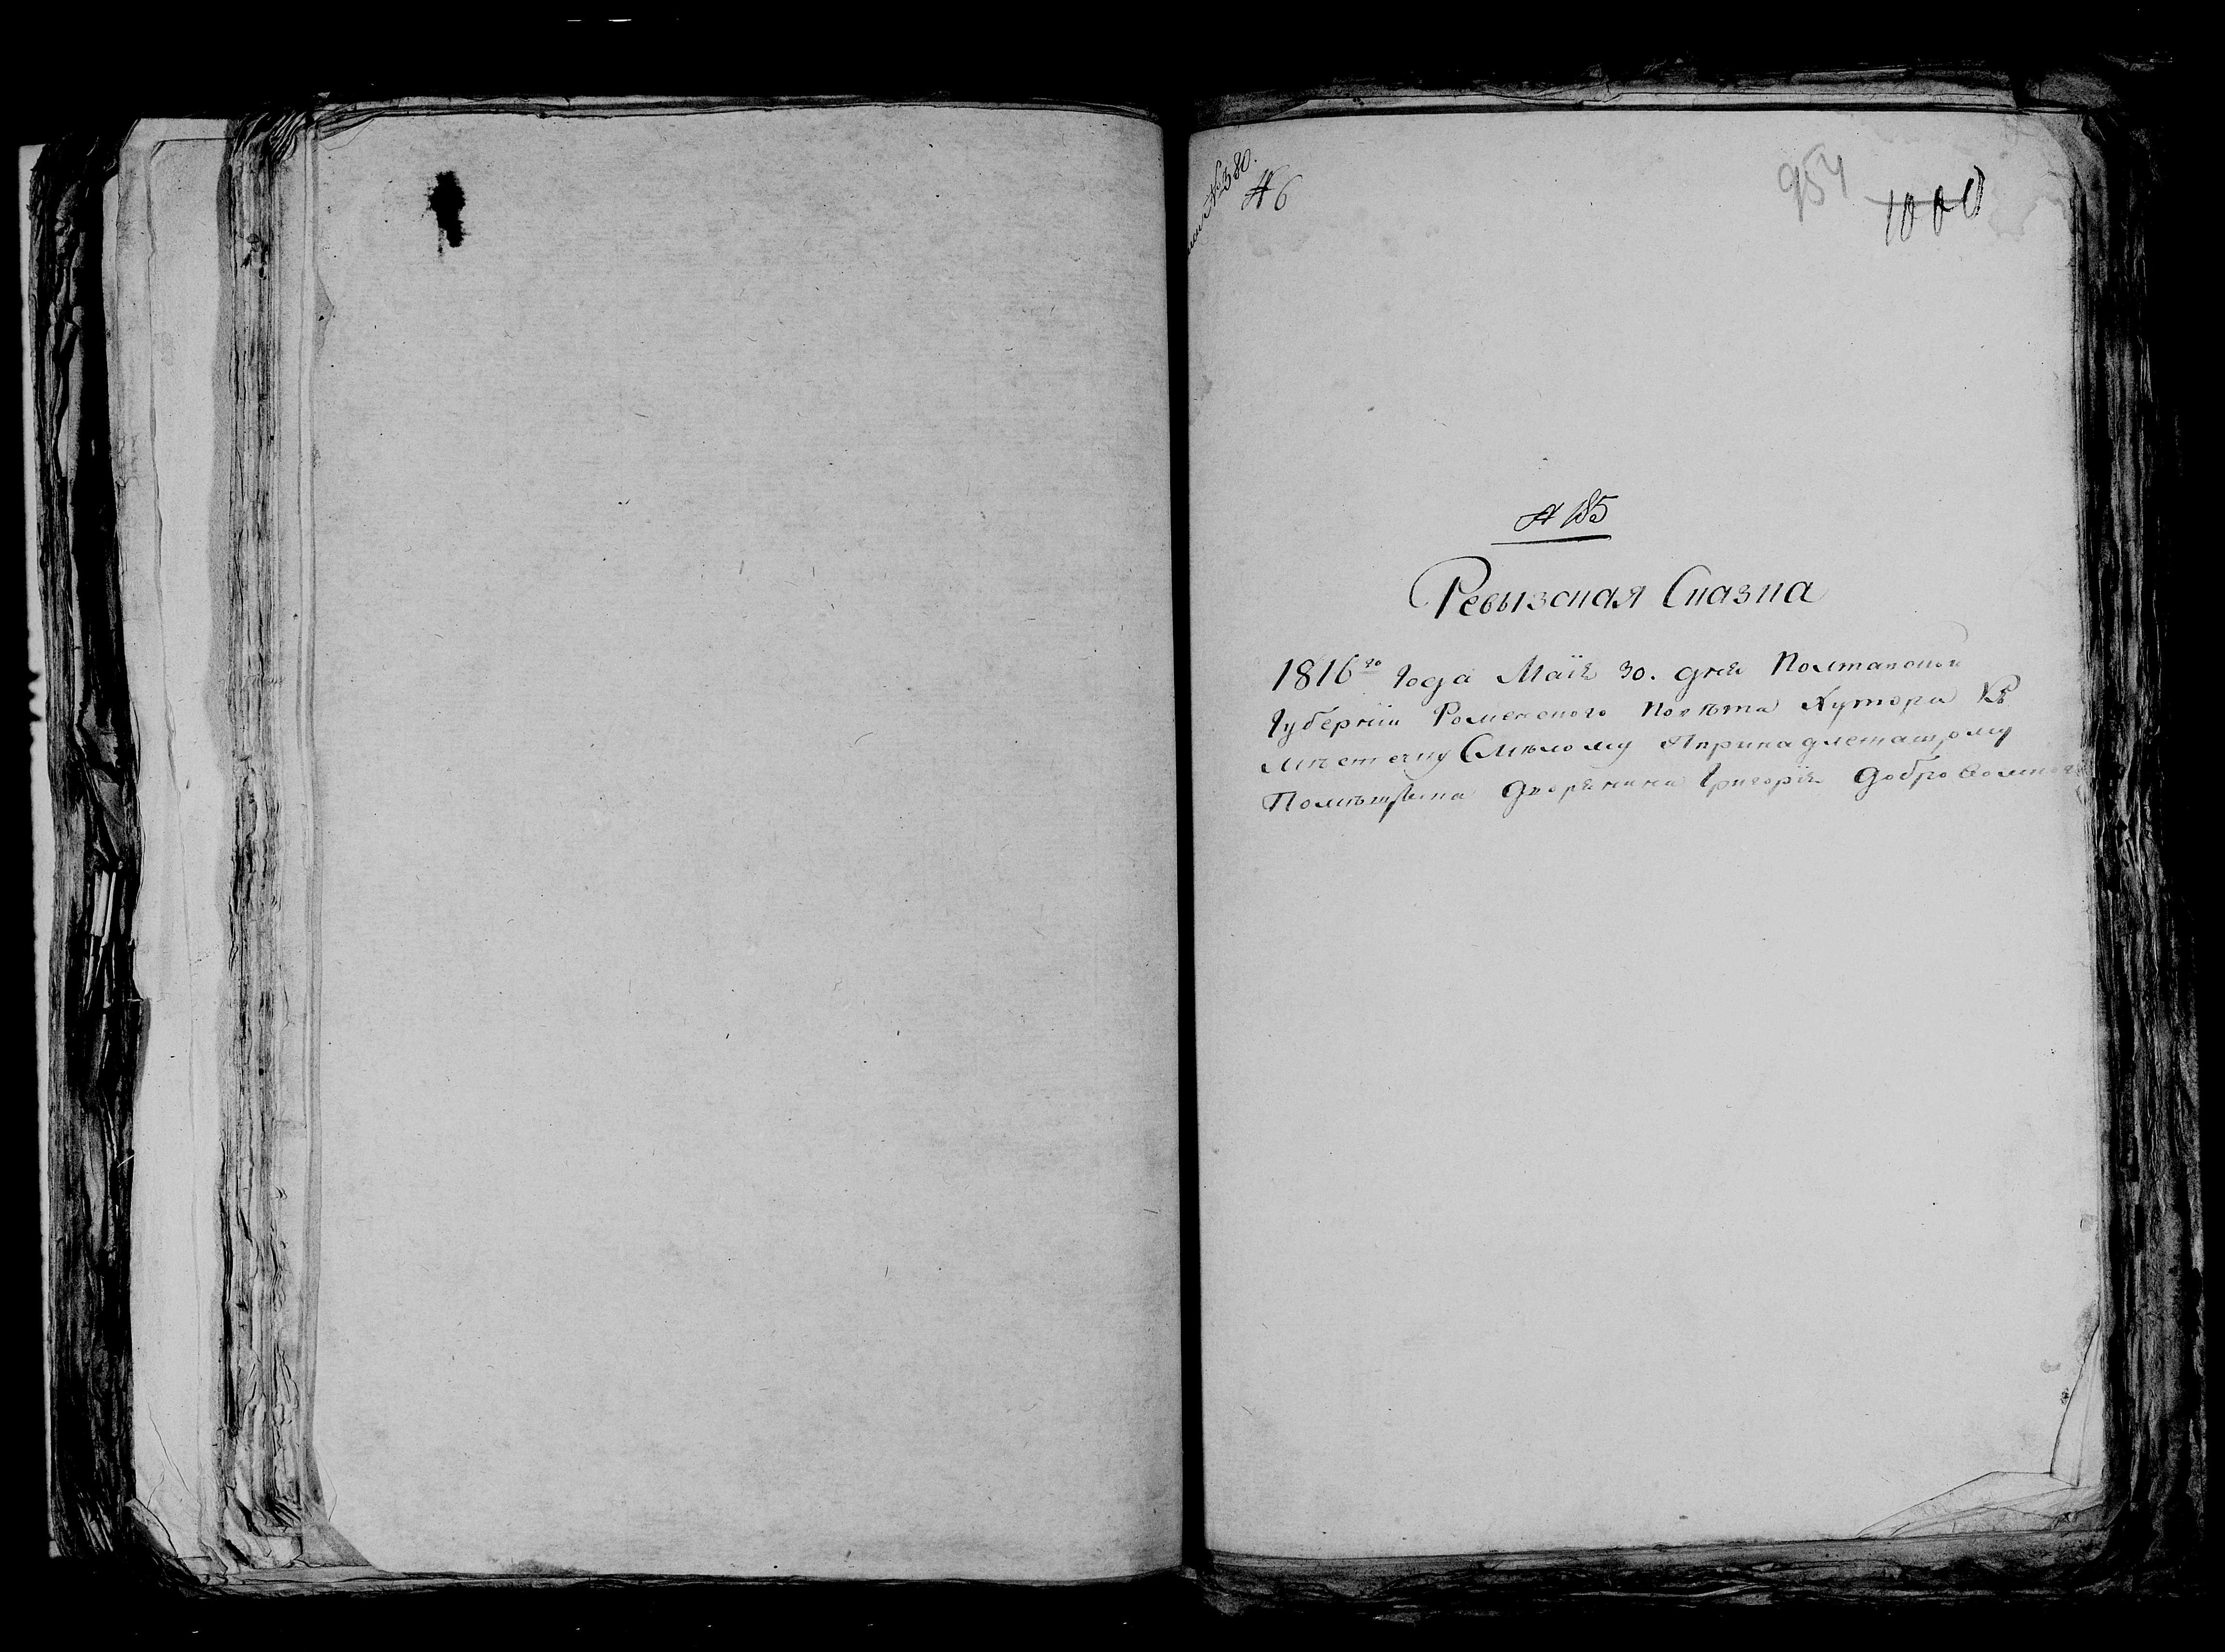 № 380.
№ 6
954
1000
№ 185
Ревызская Сказка
1816го Года Маія 30. дня Полтавской
Губерніи Роменского Повѣта Хутора Къ
мѣстечку Смѣлому Принадлежащому
Помѣщыка Дворянина Григорія